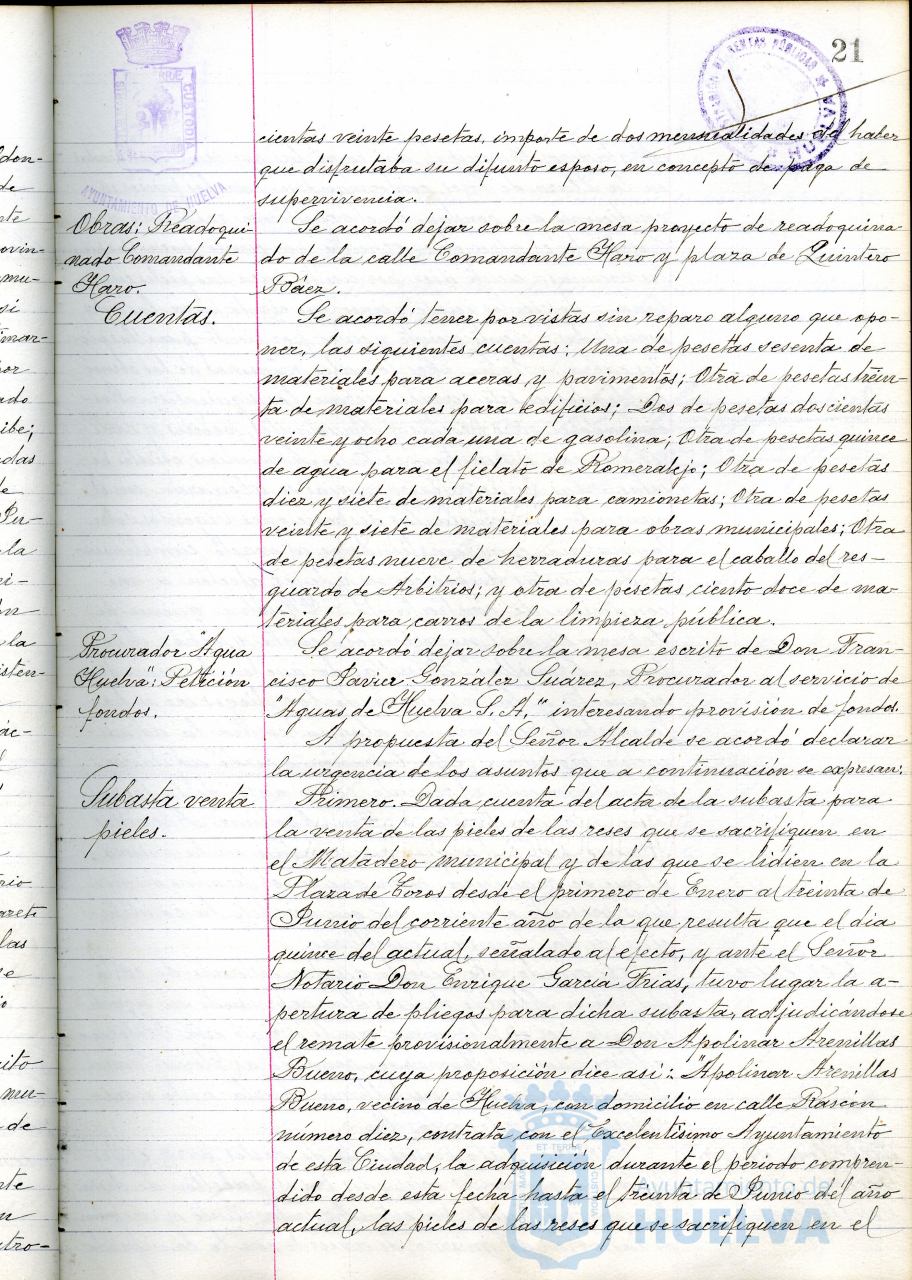 21
AYUNTAMIENTO DE HUELVA
CUSTODIA
HUELVA
cientas veinte pesetas, importe de dos mensualidades del haber
que disfrutaba su difunto esposo, en concepto de paga de
supervivencia.
Obras: Readoqui-
nado Comandante
Haro.
Se acordó dejar sobre la mesa proyecto de readoquina
do de la calle Comandante Haro y plaza de Quintero
Báez.
Cuentas.
Se acordó tener por vistas sin reparo alguno que opo-
ner, las siguientes cuentas: Una de pesetas sesenta de
materiales para aceras y pavimentos; Otra de pesetas trein-
ta de materiales para edificios; Dos de pesetas doscientas
veinte y ocho cada una de gasolina; Otra de pesetas quince
de agua para el fielato de Romeralejo; Otra de pesetas
diez y siete de materiales para camionetas; Otra de pesetas
veinte y siete de materiales para obras municipales; Otra
de pesetas nueve de herraduras para el caballo del res-
guardo de Arbitrios; y otra de pesetas ciento doce de ma-
teriales para carros de la limpieza pública.
Procurador "Agua
Huelva": Petición
fondos.
Se acordó dejar sobre la mesa escrito de Don Fran-
cisco Javier González Suárez, Procurador al servicio de
"Aguas de Huelva S. A," interesando provision de fondos.
A propuesta del Señor Alcalde se acordó declarar
la urgencia de los asuntos que a continuación se expresan:
Subasta venta
pieles.
Primero. Dada cuenta del acta de la subasta para
la venta de las pieles de las reses que se sacrifiquen en
el Matadero municipal y de las que se lidien en la
Plaza de Toros desde el primero de Enero al treinta de
Junio del corriente año de la que resulta que el dia
quince del actual, señalado al efecto, y ante el Señor
Notario Don Enrique García Frias, tuvo lugar la a-
pertura de pliegos para dicha subasta, adjudicándose
el remate provisionalmente a Don Apolinar Arenillas
Bueno, cuya proposición dice asi: "Apolinar Arenillas
Bueno, vecino de Huelva, con domicilio en calle Rascón
número diez, contrata con el Excelentisimo Ayuntamiento
de esta Ciudad, la adquisición durante el periodo compren-
dido desde esta fecha hasta el treinta de Junio del año
actual, las pieles de las reses que se sacrifiquen en el
Ayuntamiento de
HUELVA